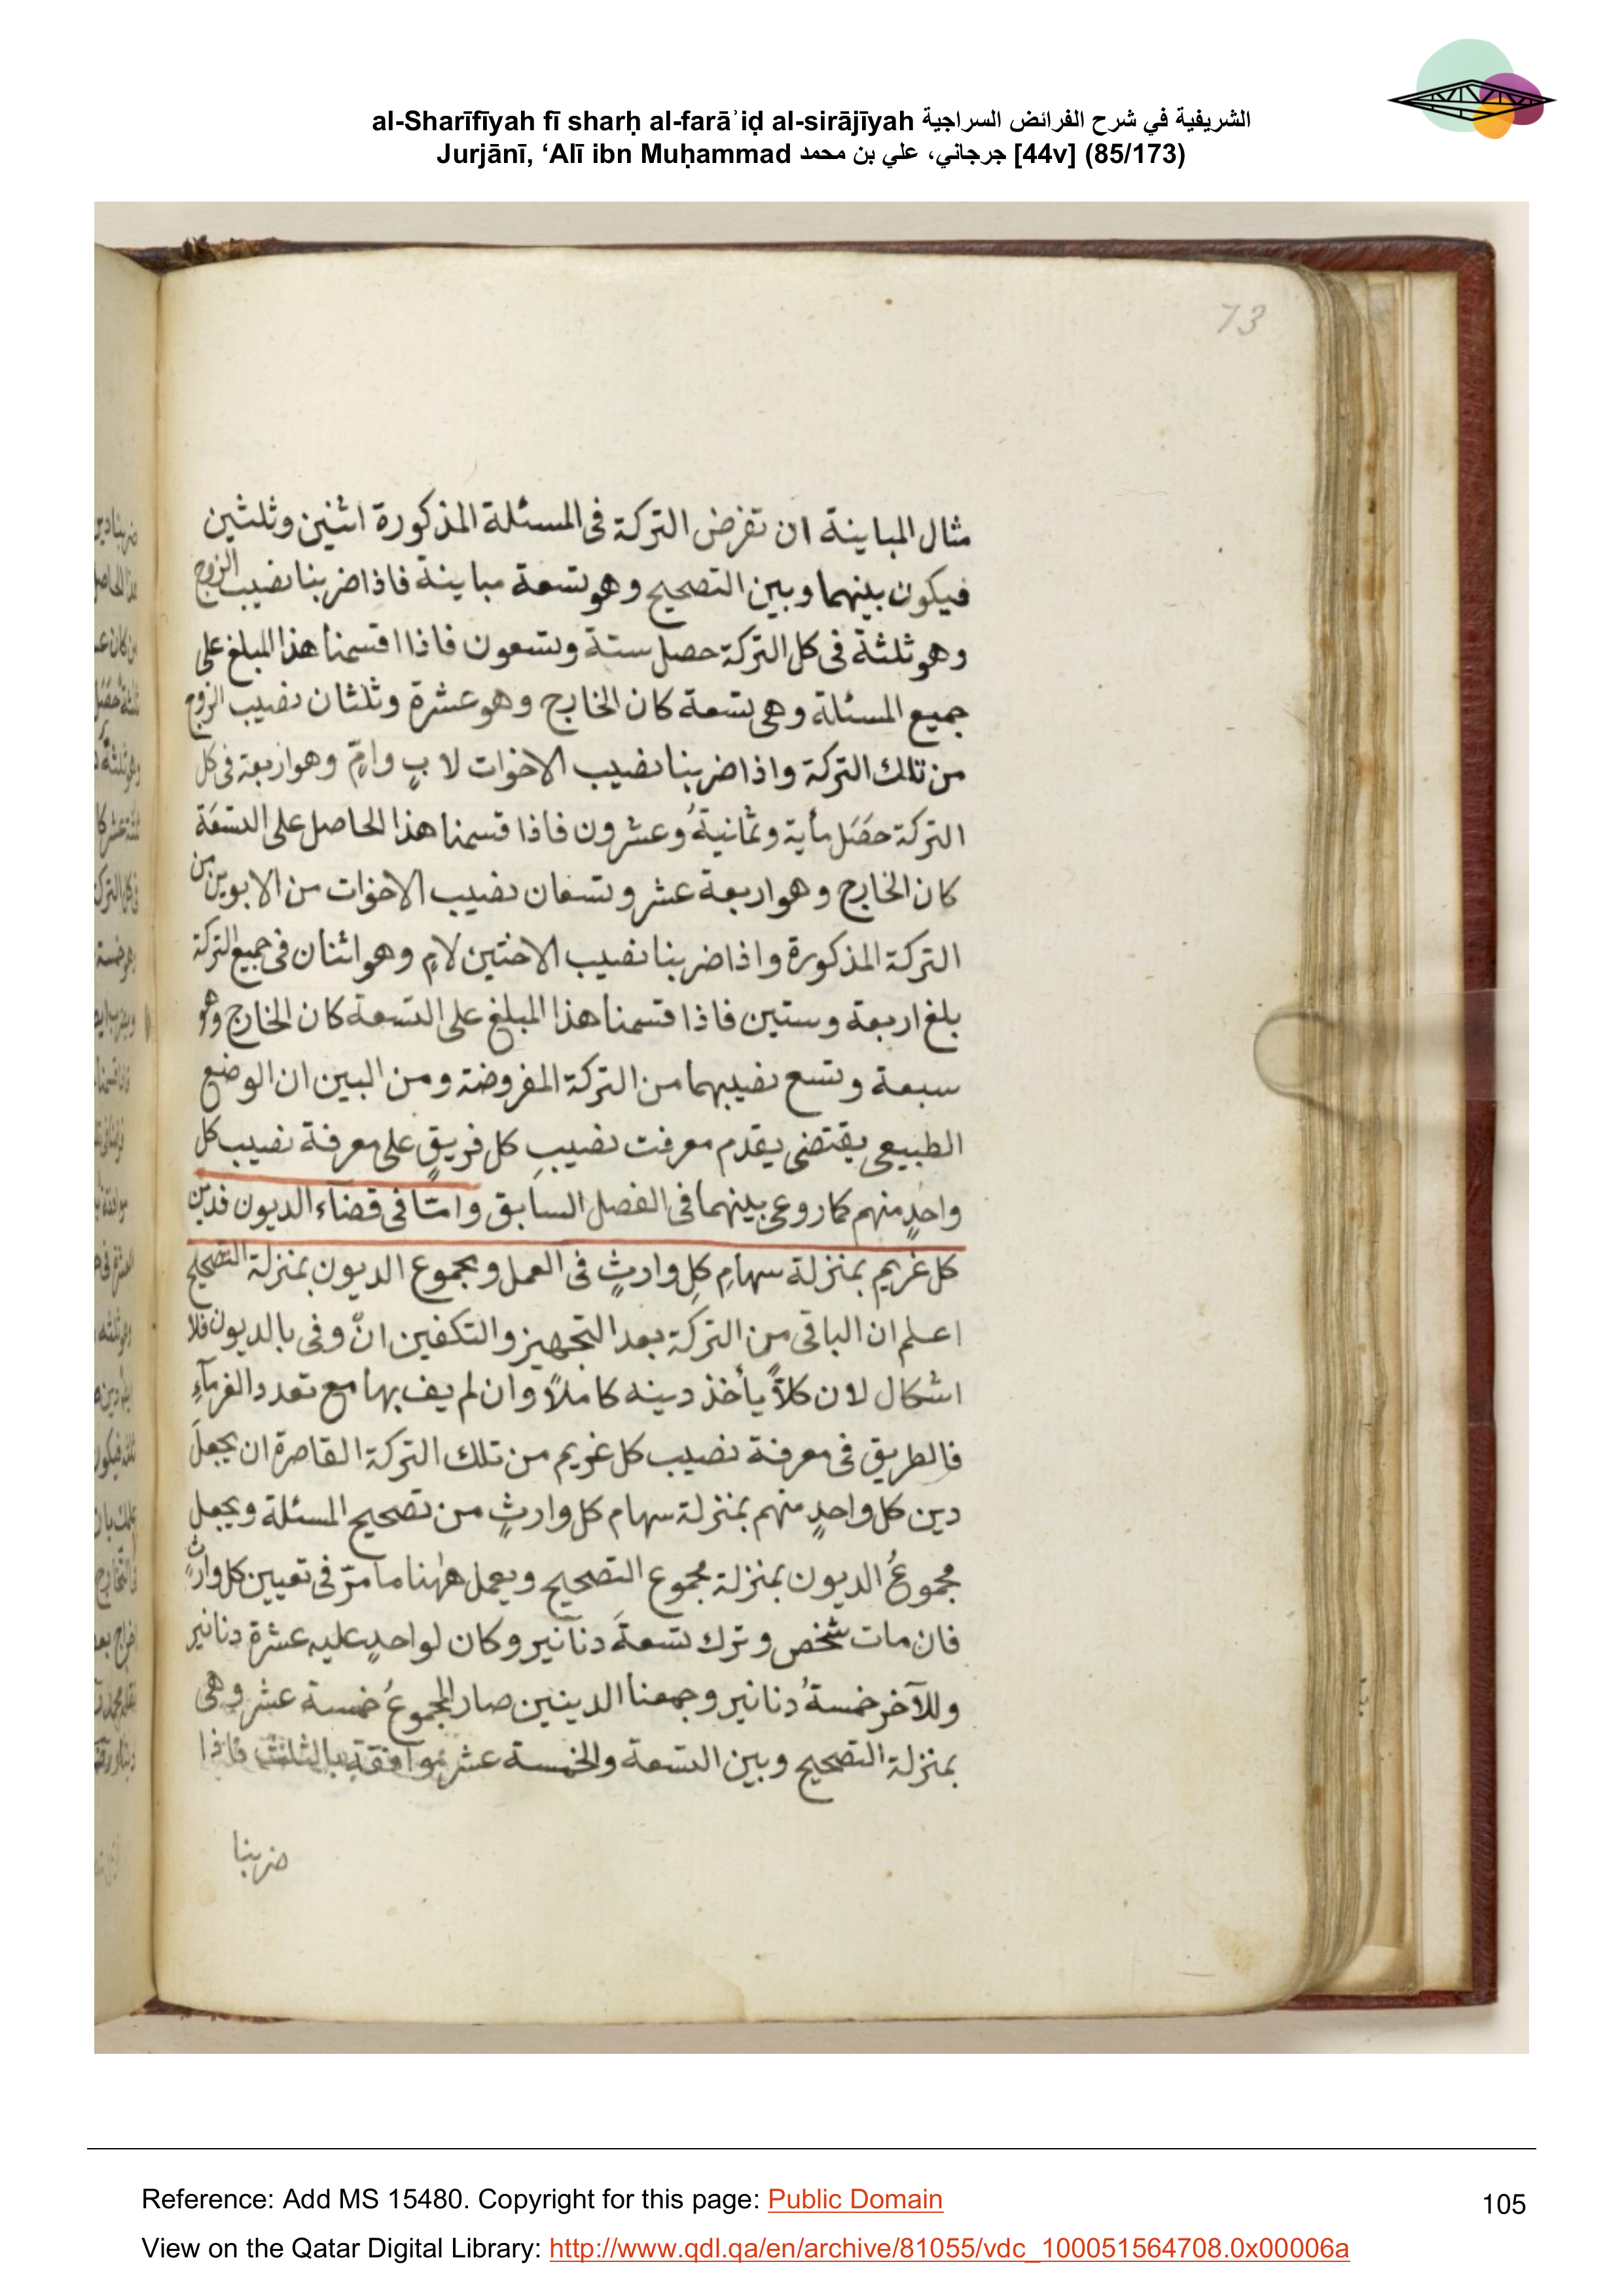 al-Sharīfīyah fī sharḥ al-farāʾiḍ al-sirājīyah الشريفية في شرح الفرائض السراجية
Jurjānī, ‘Alī ibn Muḥammad جرجاني، علي بن محمد [44v] (85/173)
73
مثال المباينة ان تفرض التركة فى المسئلة المذكورة اثنين وثلثين
فيكون بينهما وبين التصحيح وهو تسعة مباينة فاذا ضربنا نصيب الزوج
وهو ثلثة فى كل التركة حصل ستة وتسعون فاذا اقتسمنا هذا المبلغ على
جميع المسئلة وهى تسعة كان الخارج وهو عشرة وثلثان نصيب الزوج
من تلك التركة واذا ضربنا نصيب الاخوات لابٍ وامٍّ وهو اربعة فى كل
التركة حصَل مأية وثمانيةُ وعشرون فاذا قسمنا هذا الحاصل على التسعَة
كان الخارج وهو اربعة عشر وتسعان نصيب الاخوات من الابوين من
التركة المذكورة واذا ضربنا نصيب الاختين لامٍ وهو اثنان فى جميع التركة
بلغ اربعة وستين فاذا قسمنا هذا المبلغ على التسعة كان الخارج وهو
سبعة وتسع نصيبهما من التركة المفروضة ومن البين ان الوضع
الطبيعى يقتضى يقدم معرفت نصيبِ كل فريقٍ على معرفة نصيب كل
واحدٍ منهم كما روعى بينهما فى الفصل السابق وامّا فى قضآء الديون فدين
كل غريم بمنزلة سهامِ كلِ وارثٍ فى العمل ومجموع الديون بمنزلة التصحيح
اعلم ان الباقى من التركة بعد التجهيز والتكفين انْ وفى بالديون فلا
اشكال لان كلاًّ يأخذ دينه كاملاً وان لم يف بها مع تعدد الغرمآءِ
فالطريق فى معرفة نصيب كل غريم من تلك التركة القاصرة ان يجعلَ
دين كل واحدٍ منهم بمنزلة سهام كل وارثٍ من تصحيح المسئلة ويجعل
مجموعُ الديون بمنزلة مجموع التصحيح ويعمل ههنا ما مرّ فى تعيين كل وارثٍ
فان مات شخص وترك تسعةَ دنانير وكان لواحدٍ عليه عشرة دنانير
وللآخر خمسةُ دنانير وجمعنا الدينين صار المجموعُ خمسة عشر وهى
بمنزلة التصحيح وبين التسعة والخمسة عشر موافقة بالثلث فاذا
ضربنا
Reference: Add MS 15480. Copyright for this page: Public Domain
105
View on the Qatar Digital Library: http://www.qdl.qa/en/archive/81055/vdc_100051564708.0x00006a